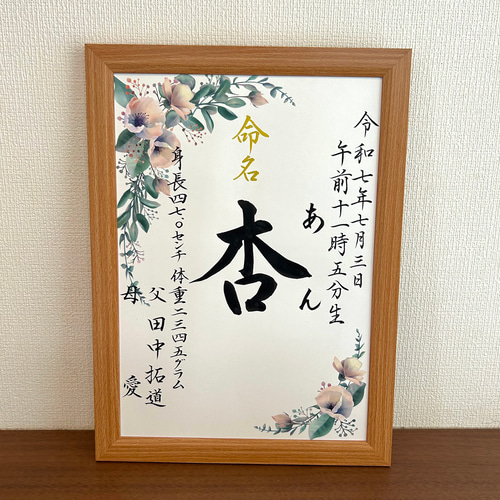 令和七年七月三日
午前十一時五分生
あん
命名
杏
身長四七〇センチ 体重二三四五グラム
父 田中拓道
母 愛